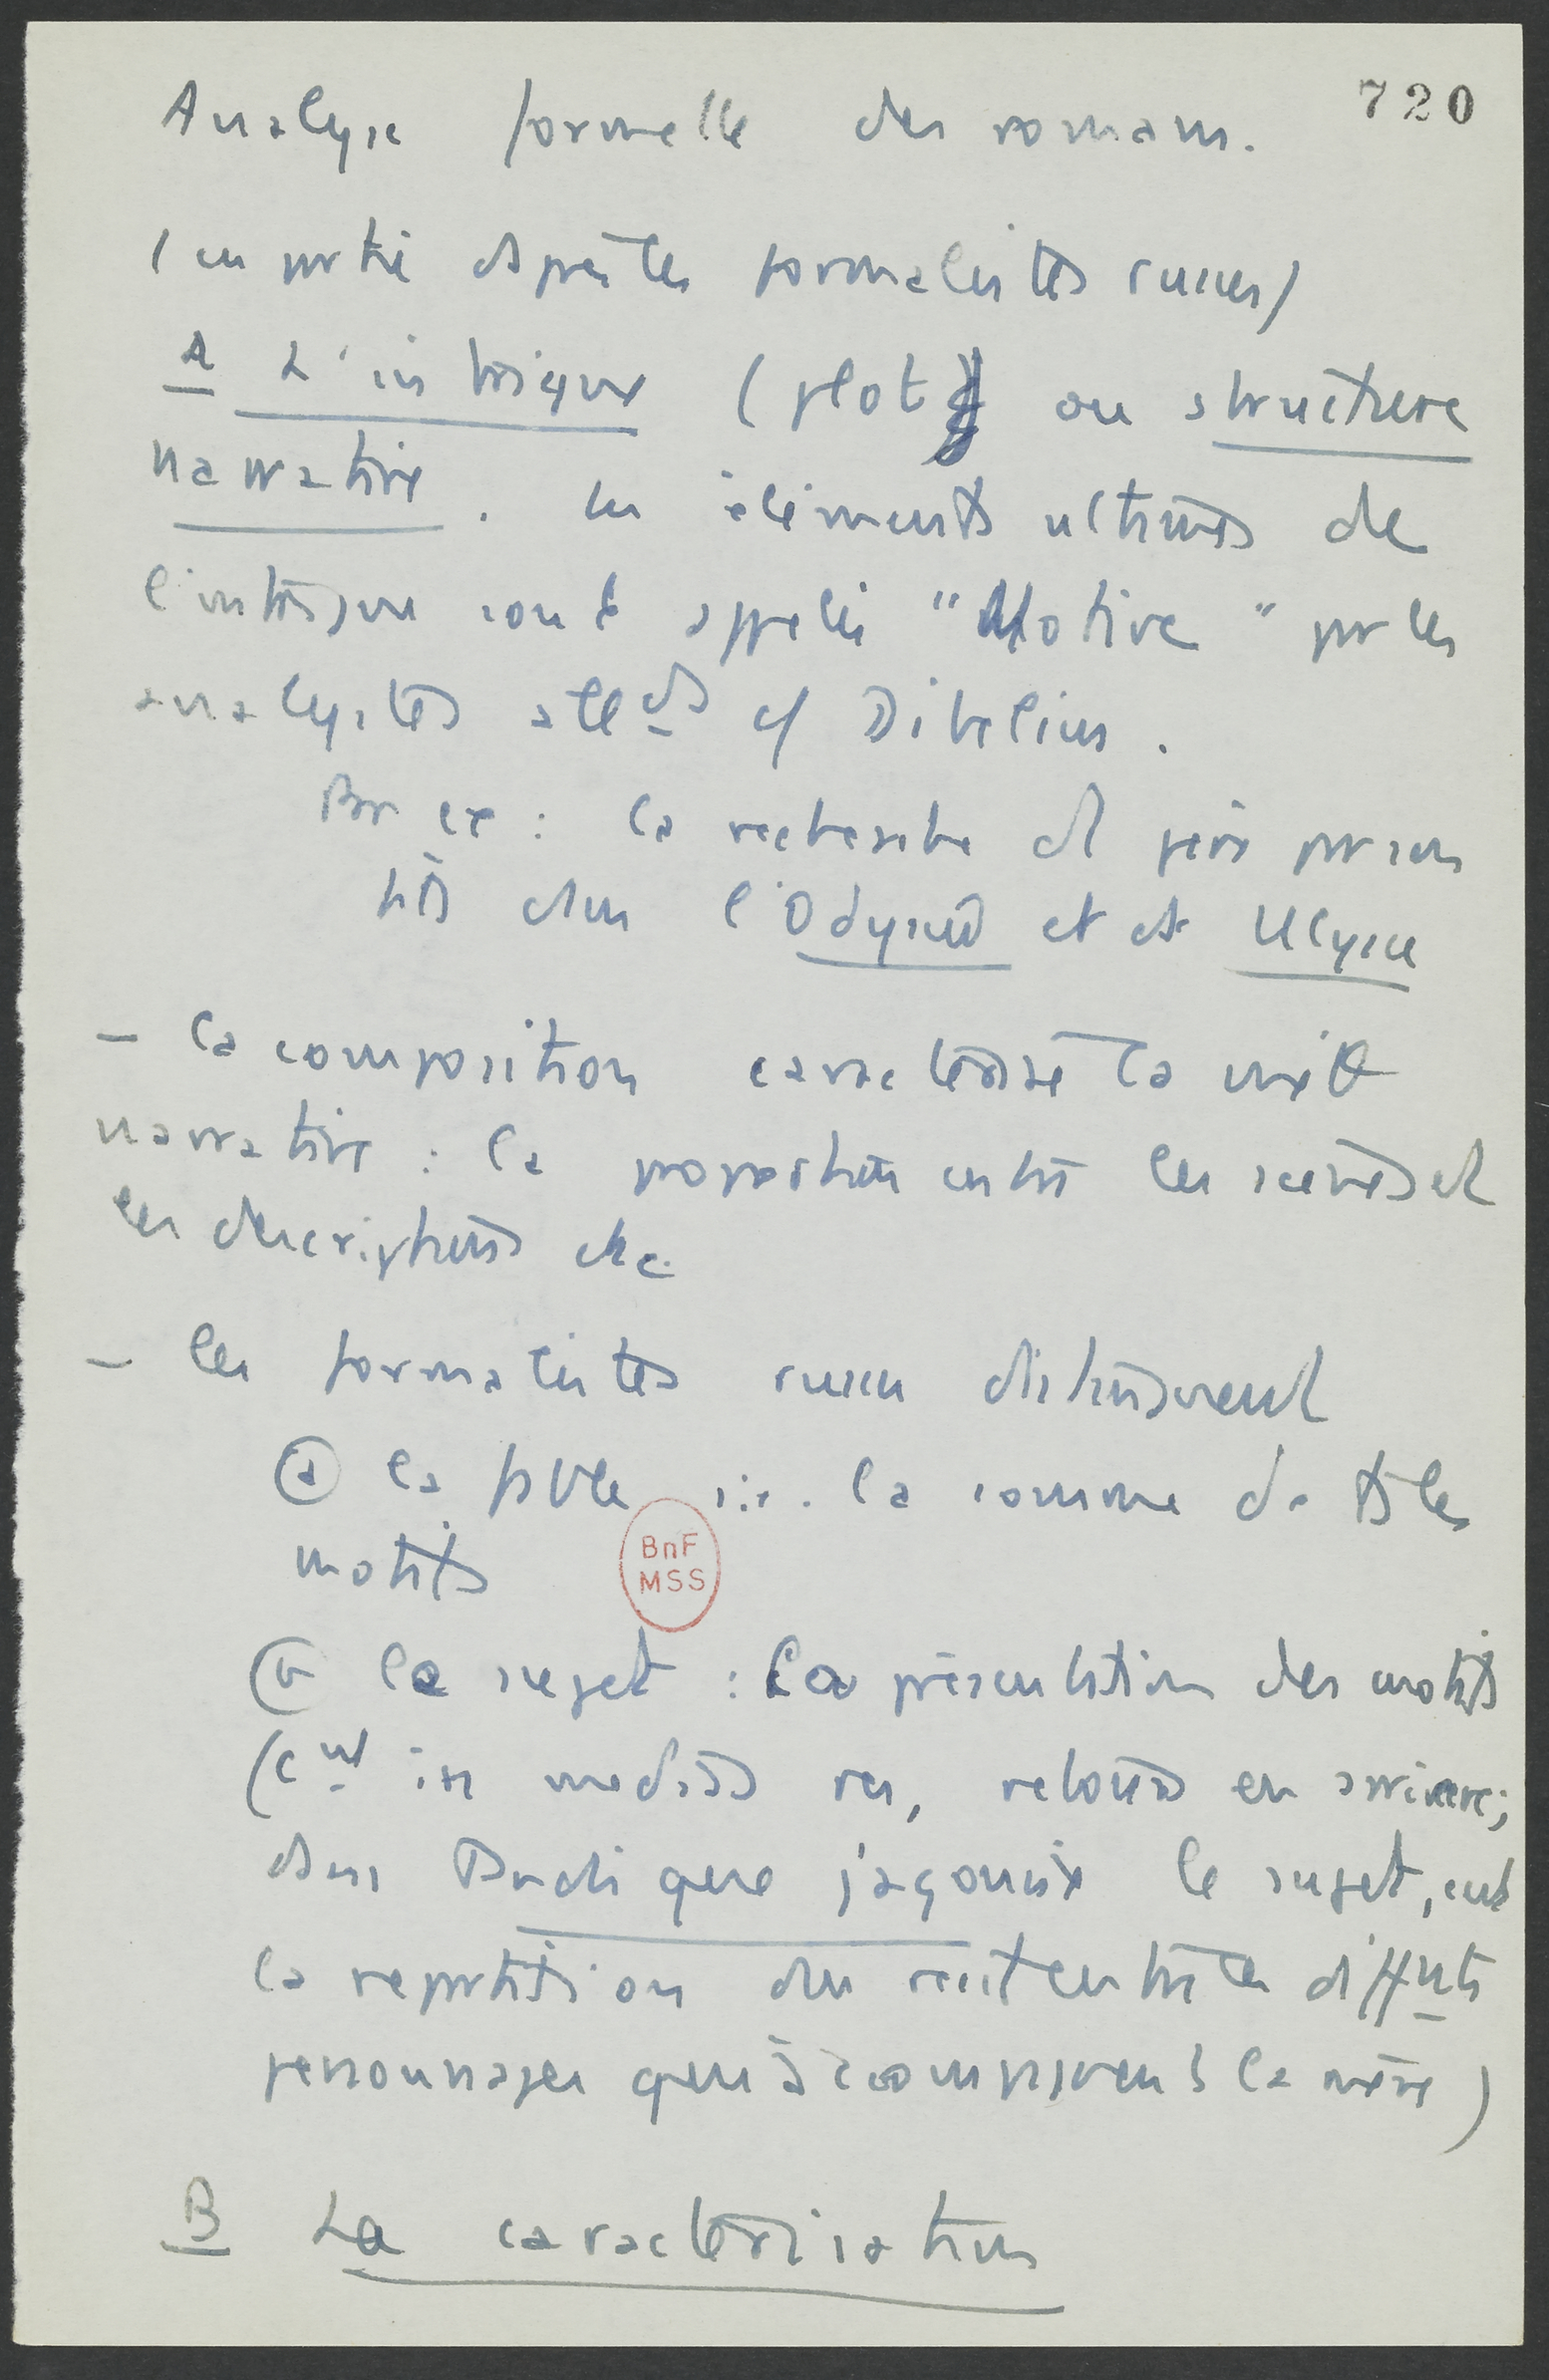 720
Analyse formelle des romans.
(en partie d'après les formalistes russes)
A L'intrigue (plot) ou structure
narrative. les éléments ultimes de
l'intrigue sont appelés "Motive" par les
analystes allds cf Dibelius.
Par ex : la recherche du père par son
fils dans l'Odyssée et ds Ulysse
– la composition caractérise la unité
narrative : la proportion entre les scènes et
les descriptions etc.
– les formalistes russes distinguent
(a) la fable i.e. la somme de ts les
motifs
BnF
MSS
(b) le sujet : la présentation des motifs
(cnt in medias res, retours en arrière;
dans Tandis que j'agonise le sujet, est
la répartition du récit entre les differnts
personnages qui accompagnent la mère)
B La caractérisation